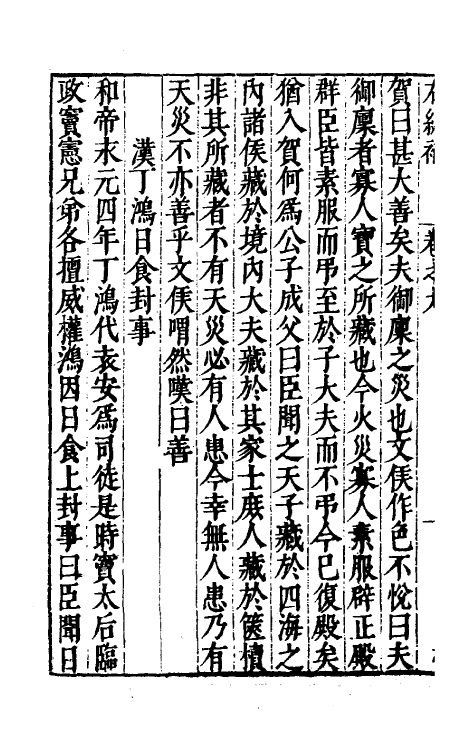 賀曰甚大善矣夫御廩之災也文侯作色不悅曰夫
御廩者寡人寶之所藏也今火災寡人素服辟正殿
群臣皆素服而弔至於子大夫而不弔今已復殿矣
猶入賀何為公子成父曰臣聞之天子藏於四海之
內諸侯藏於境內大夫藏於其家士庶人藏於篋櫝
非其所藏者不有天災必有人患今幸無人患乃有
天災不亦善乎文侯喟然嘆曰善
漢丁鴻日食封事
和帝永元四年丁鴻代袁安為司徒是時竇太后臨
政竇憲兄弟各擅威權鴻因日食上封事曰臣聞日